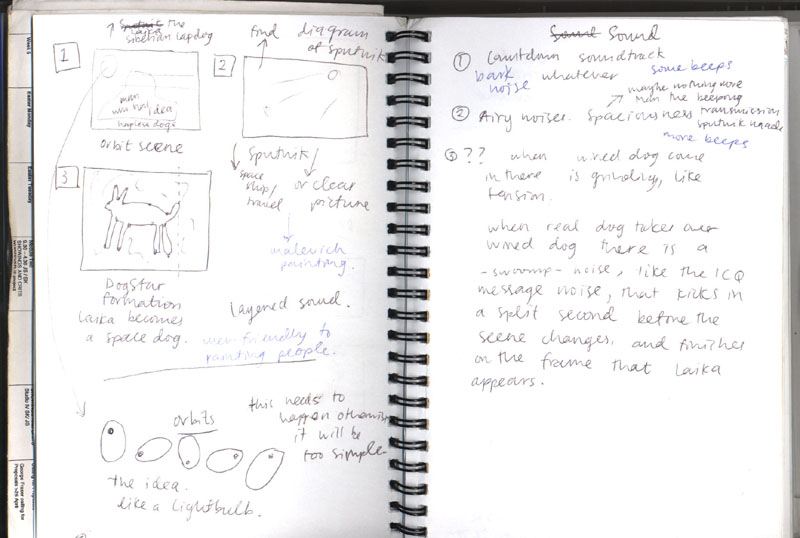 Laika the
siberian lapdog
find diagram
of sputnik
1
2
man
idea
hapless dogs
orbit scene
Sputnik
space
ship/
travel
or clear
picture
malevich
painting.
3
DogStar
formation
Laika becomes
a space dog.
layered sound.
user-friendly to
painting people.
orbits
this needs to
happen otherwise
it will be
too simple.
the idea.
like a lightbulb.
Sound Sound
① Countdown soundtrack
bark whatever some beeps
noise
maybe nothing more
than the beeping
② Airy noises. spaciousness transmission
sputnik
more beeps
③ ?? when wired dog come
in there is grinding, like
tension.
when real dog takes over
wired dog there is a
-swoomp- noise, like the ICQ
message noise, that kicks in
a split second before the
scene changes, and finishes
on the frame that Laika
appears.
Week 5
Easter Monday
Easter Tuesday